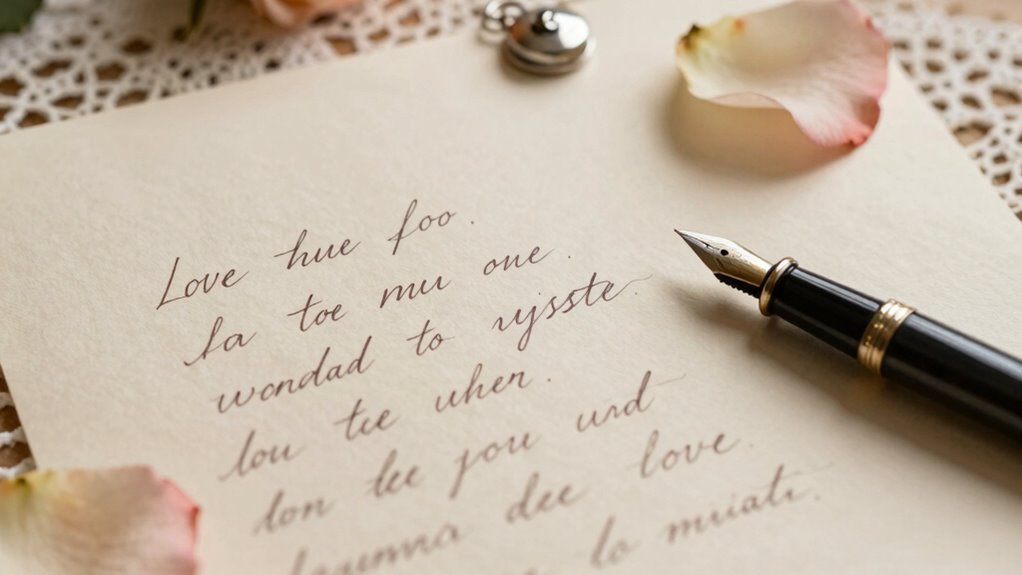 Love hue foo.
la toe mu one.
wondad to ysste.
lou tee when.
lon lee you urd
dee love.
lo muiatr.